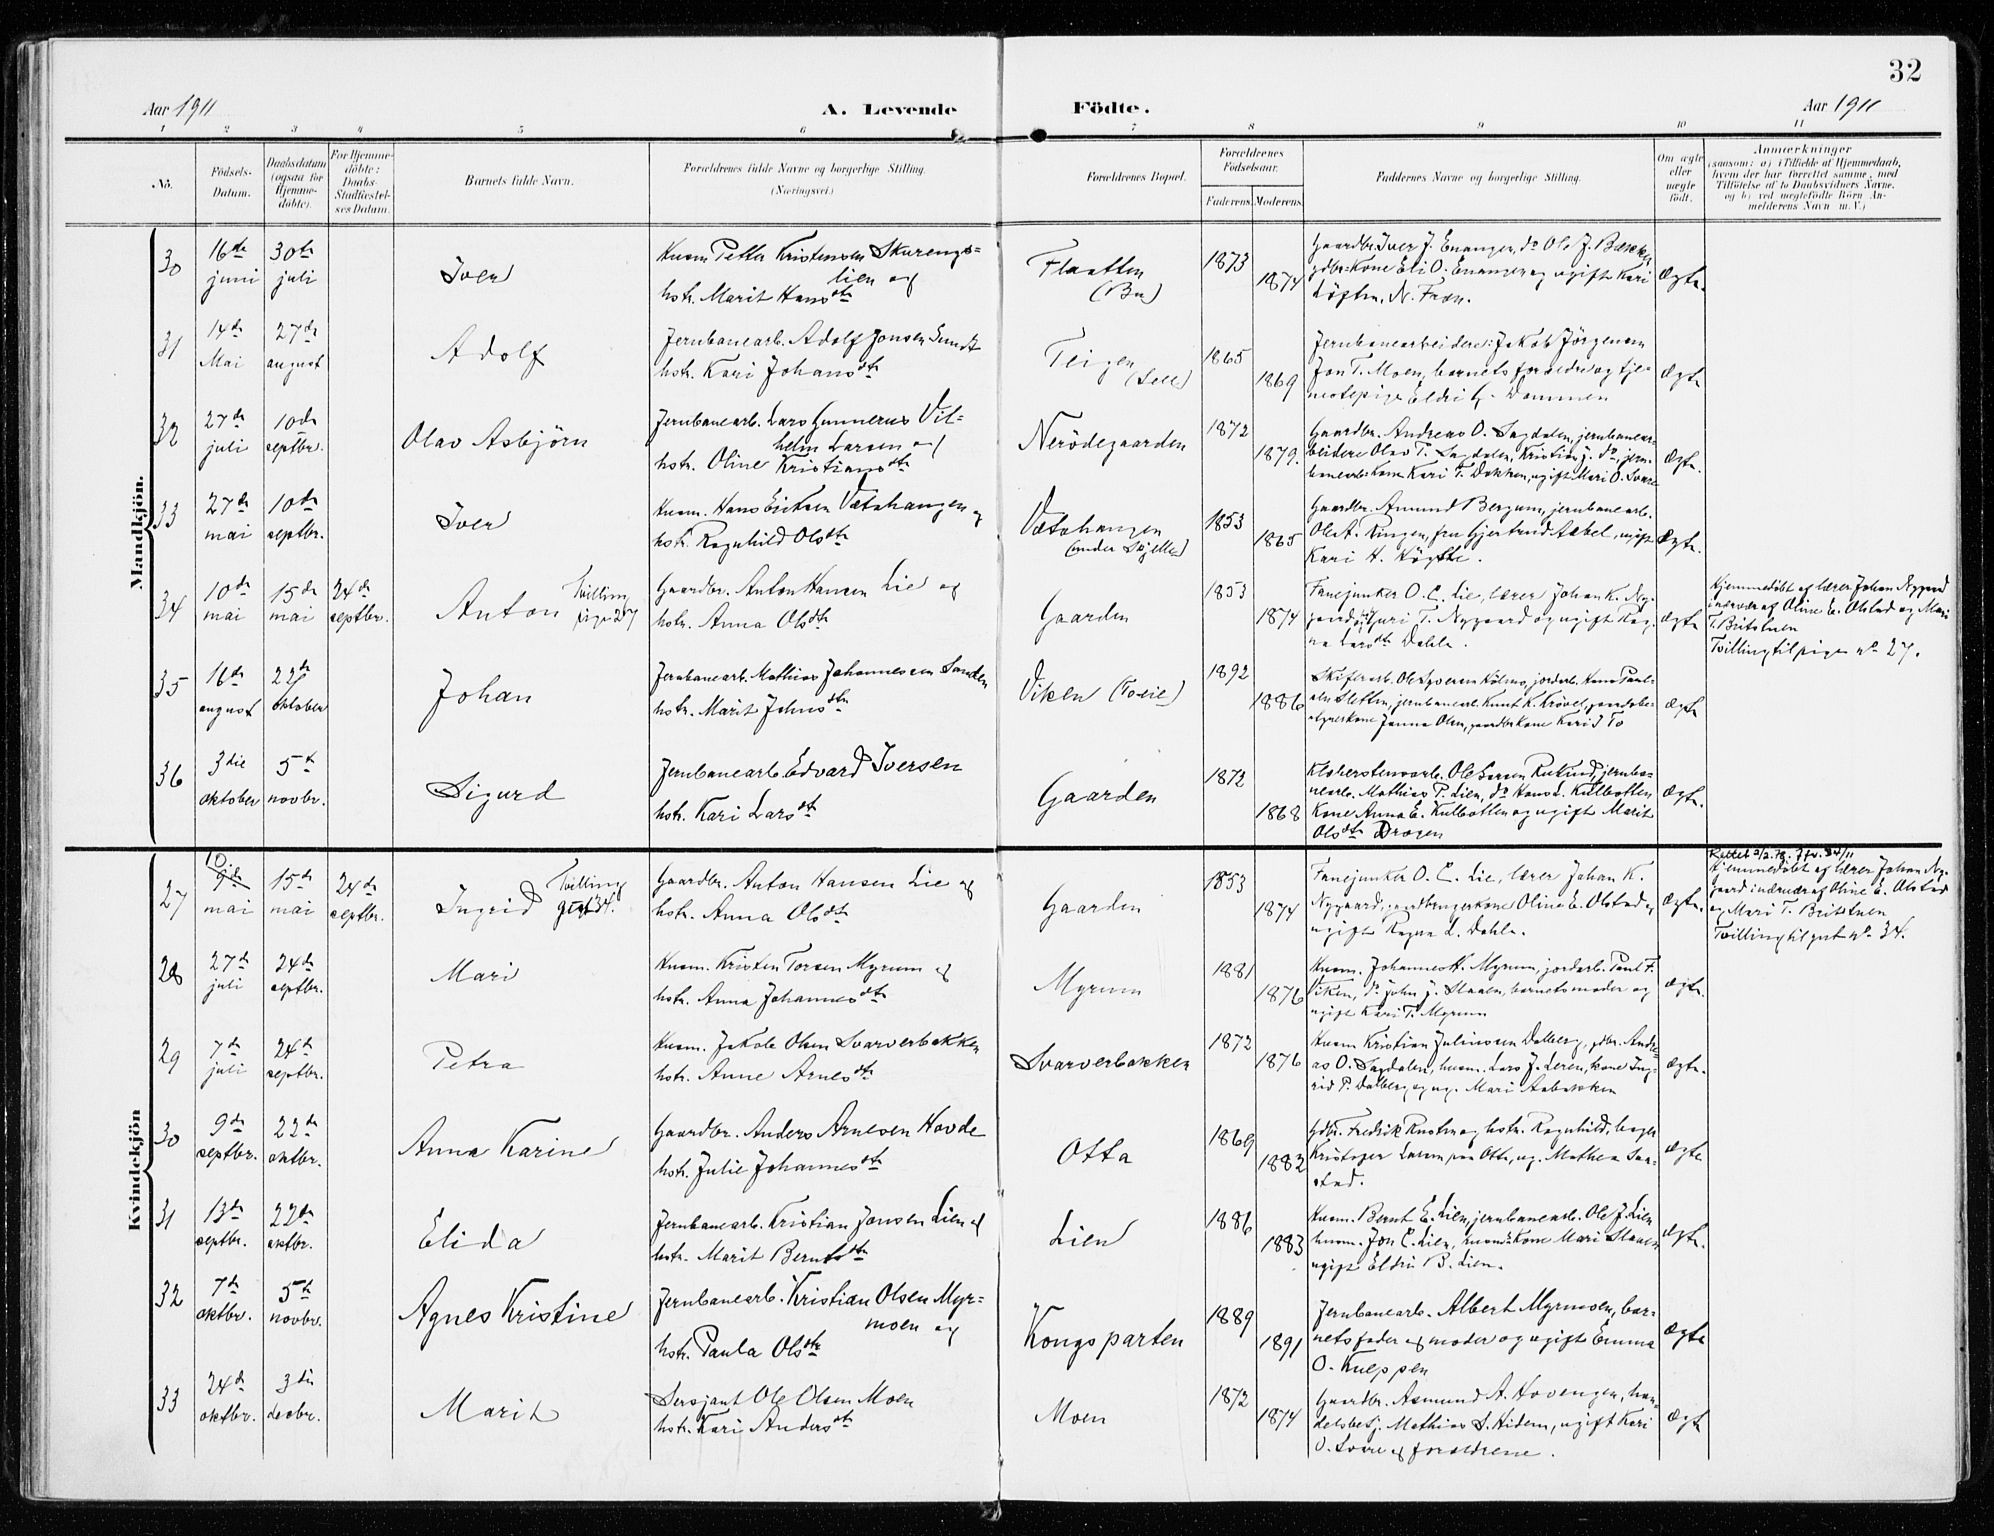 32
Aar 1911
A. Levende
Födte.
Aar 1911
1 2 3 4 5 6 7 8 9 10 11
No.
Födsels-
Datum.
Daabsdatum
(ogsaa for
Hjemme-
döbte).
For Hjemme-
döbte:
Daabs-
Stadfæstel-
ses Datum.
Barnets fulde Navn.
Forældrenes fulde Navne og borgerlige Stilling.
(Næringsvei.)
Forældrenes Bopæl.
Forældrenes
Födselsaar.
Faderens. Moderens.
Faddernes Navne og borgerlige Stilling.
Om ægte
eller
uægte
födt.
Anmærkninger
(saasom: a) i Tilfælde af Hjemmedaab,
hvem der har forrettet samme, med
Tilföielse af to Daabsvidners Navne,
og b) ved uægtefödte Börn An-
melderens Navn m. V.)
Mandkjön.
30
16de
juni
30te
juli
Iver
Husm. Petter Kristensen Skurengs-
lien og
hstr. Marit Hansdtr
Flaatten
(Bu)
1873
1874
Gaardbr. Iver J. Enanger, do Ole J. Bækken
gdbr. Kone Eli O. Enanger og ugift Kari
Löften, N. Fron.
Ægte.
31
14de
Mai
27de
august
Adolf
Jernbanearb. Adolf Jonsen Sundt
hstr. Kari Johansdtr
Teigen
(Sell)
1865
1869
Jernbanearbeidere: Jakob Jörgensen
Jon T. Moen, barnets forældre og tje-
nestepige Eldri G. Dammen
Ægte
32
27de
juli
10de
septbr.
Olav Asbjörn
Jernbanearb. Lars Gunnerus Vil-
helm Larsen og
hstr. Oline Kristiansdtr
Nerödegaarden
1872
1879.
Gaardbr. Andreas O. Sagdalen, jernbanear-
beidere Olav T. Sagdalen, Kristian J. do, jern-
banearb. Kone Kari T. Dokken, ugift Mari O. Svare
Ægte.
33
27de
mai
10de
septbr.
Iver
Husm. Hans Eriksen Vetehangen og
hstr. Ragnhild Olsdtr
Vetehangen
(under Skjelle)
1853
1865
Gaardbr. Amund Bergum, jernbanearb.
Ole A. Ringen, fru Gjertrud Aabel, ugift
Kari H. Högthe.
Ægte.
34
10de
mai
15de
mai
24de
septbr.
Anton
Tvilling
pige 27
Gaardbr. Anton Hansen Lie og
hstr. Anna Olsdtr
Gaarden
1853
1874
Fanejunker O. C. Lie, lærer Johan K. Ny-
gaard, Guri T. Nygaard og ugift Rag-
na Larsdtr Dahle.
Ægte
Hjemmedöbt af lærer Johan Nygaard
i nærvær af Oline E. Olstad og Mari
T. Britstuen
Tvilling til pige No 27.
35
16de
august
22de
oktober
Johan
Jernbanearb. Mathias Johannesen Sanden
hstr. Marit Johnsdtr
Viken (Toeie)
1892
1886
Skiferarb. Ole Syversen Kolmo, jordarb. Hans Paul-
sen Sletten, jernbanearb. Knut K. Krövel,
Janna Olsen, gaardbr. kone Kari J To
Ægte
36
3die
oktober
5te
novbr.
Sigurd
Jernbanearb. Edvard Iversen
hstr. Kari Larsdtr
Gaarden
1872
1868
Klæberstensarb. Ole Larsen Ruttind, jernba-
nearb. Mathias P. Lien, do Hans L. Kulbotten
Kone Anna E. Kulbotten og ugift Marit
Olsdtr Drogen
Ægte.
Kvindekjön
27
10de
9de
mai
15de
mai
24de
septbr.
Ingrid
Tvilling
gut 34.
Gaardbr. Anton Hansen Lie og
hstr. Anna Olsdtr
Gaarden
1853
1874
Fanejunker O. C. Lie, lærer Johan K.
Nygaard, gaardbrugerkone Oline E. Olstad og
ugift Ragna L. Dahle.
Ægte.
Rettet 2/2.78. Jfr. 34/11
Hjemmedöbt af lærer Johan Ny-
gaard i nærvær af Oline E. Olstad
og Mari T. Britstuen
Tvilling til gut No 34.
28
27de
juli
24de
septbr.
Mari
Husm. Kristen Torsen Myrum og
hstr. Anna Johannesdtr
Myrum
1881
1876
Husm. Johannes H. Myrum, jordarb. Paul F.
Viken, do John J. Slaaen, barnets moder og
ugift Kari T. Myrum
ægte.
29
7de
juli
24de
septbr.
Petra
Husm. Jakob Olsen Svarverbakken
hstr. Anne Arnesdtr
Svarverbakken
1872
1876
Husm. Kristian Juliussen Dalberg, gdbr. Andre-
as O. Sagdalen, husm. Lars J. Leren, kone Ing-
rid P. Dalberg og ug. Mari Aabakken
Ægte.
30
9de
septbr.
22de
oktbr.
Anna Karine
Gaardbr. Anders Arnesen Hovde
hstr. Julie Johannesdtr
Otta
1869
1882
Gdbr. Fredrik Rusten og hstr. Ragnhild, bager
Kristofer Larsen paa Otta, ug. Mathea Sun-
stad.
Ægte
31
13de
septbr.
22de
oktbr.
Elida
Jernbanearb. Kristian Jonsen Lien og
hstr. Marit Berntsdtr
Lien
1886
1883
Husm. Bernt E. Lien, jernbanearb. Ole J. Lien
husm. Jon E. Lien, husmd. Kone Mari Slaaen
ugift Eldri B. Lien.
ægte.
32
7de
oktbr.
5te
novbr.
Agnes Kristine
Jernbanearb. Kristian Olsen Myr-
moen og
hstr. Paula Olsdtr
Kongsparten
1889
1891
Jernbanearb. Albert Myrmoen, bar-
nets fader og moder og ugift Emma
O. Kleppen
Ægte
33
24de
oktbr.
3die
decbr.
Marit
Sersjant Ole Olsen Moen
hstr. Kari Andersdtr
Moen
1872
1874
Gaardbr. Asmund A. Hovengen, han-
delsbetj. Mathias S. Hidem, ugift Kari
O. Svare og forældrene.
Ægte